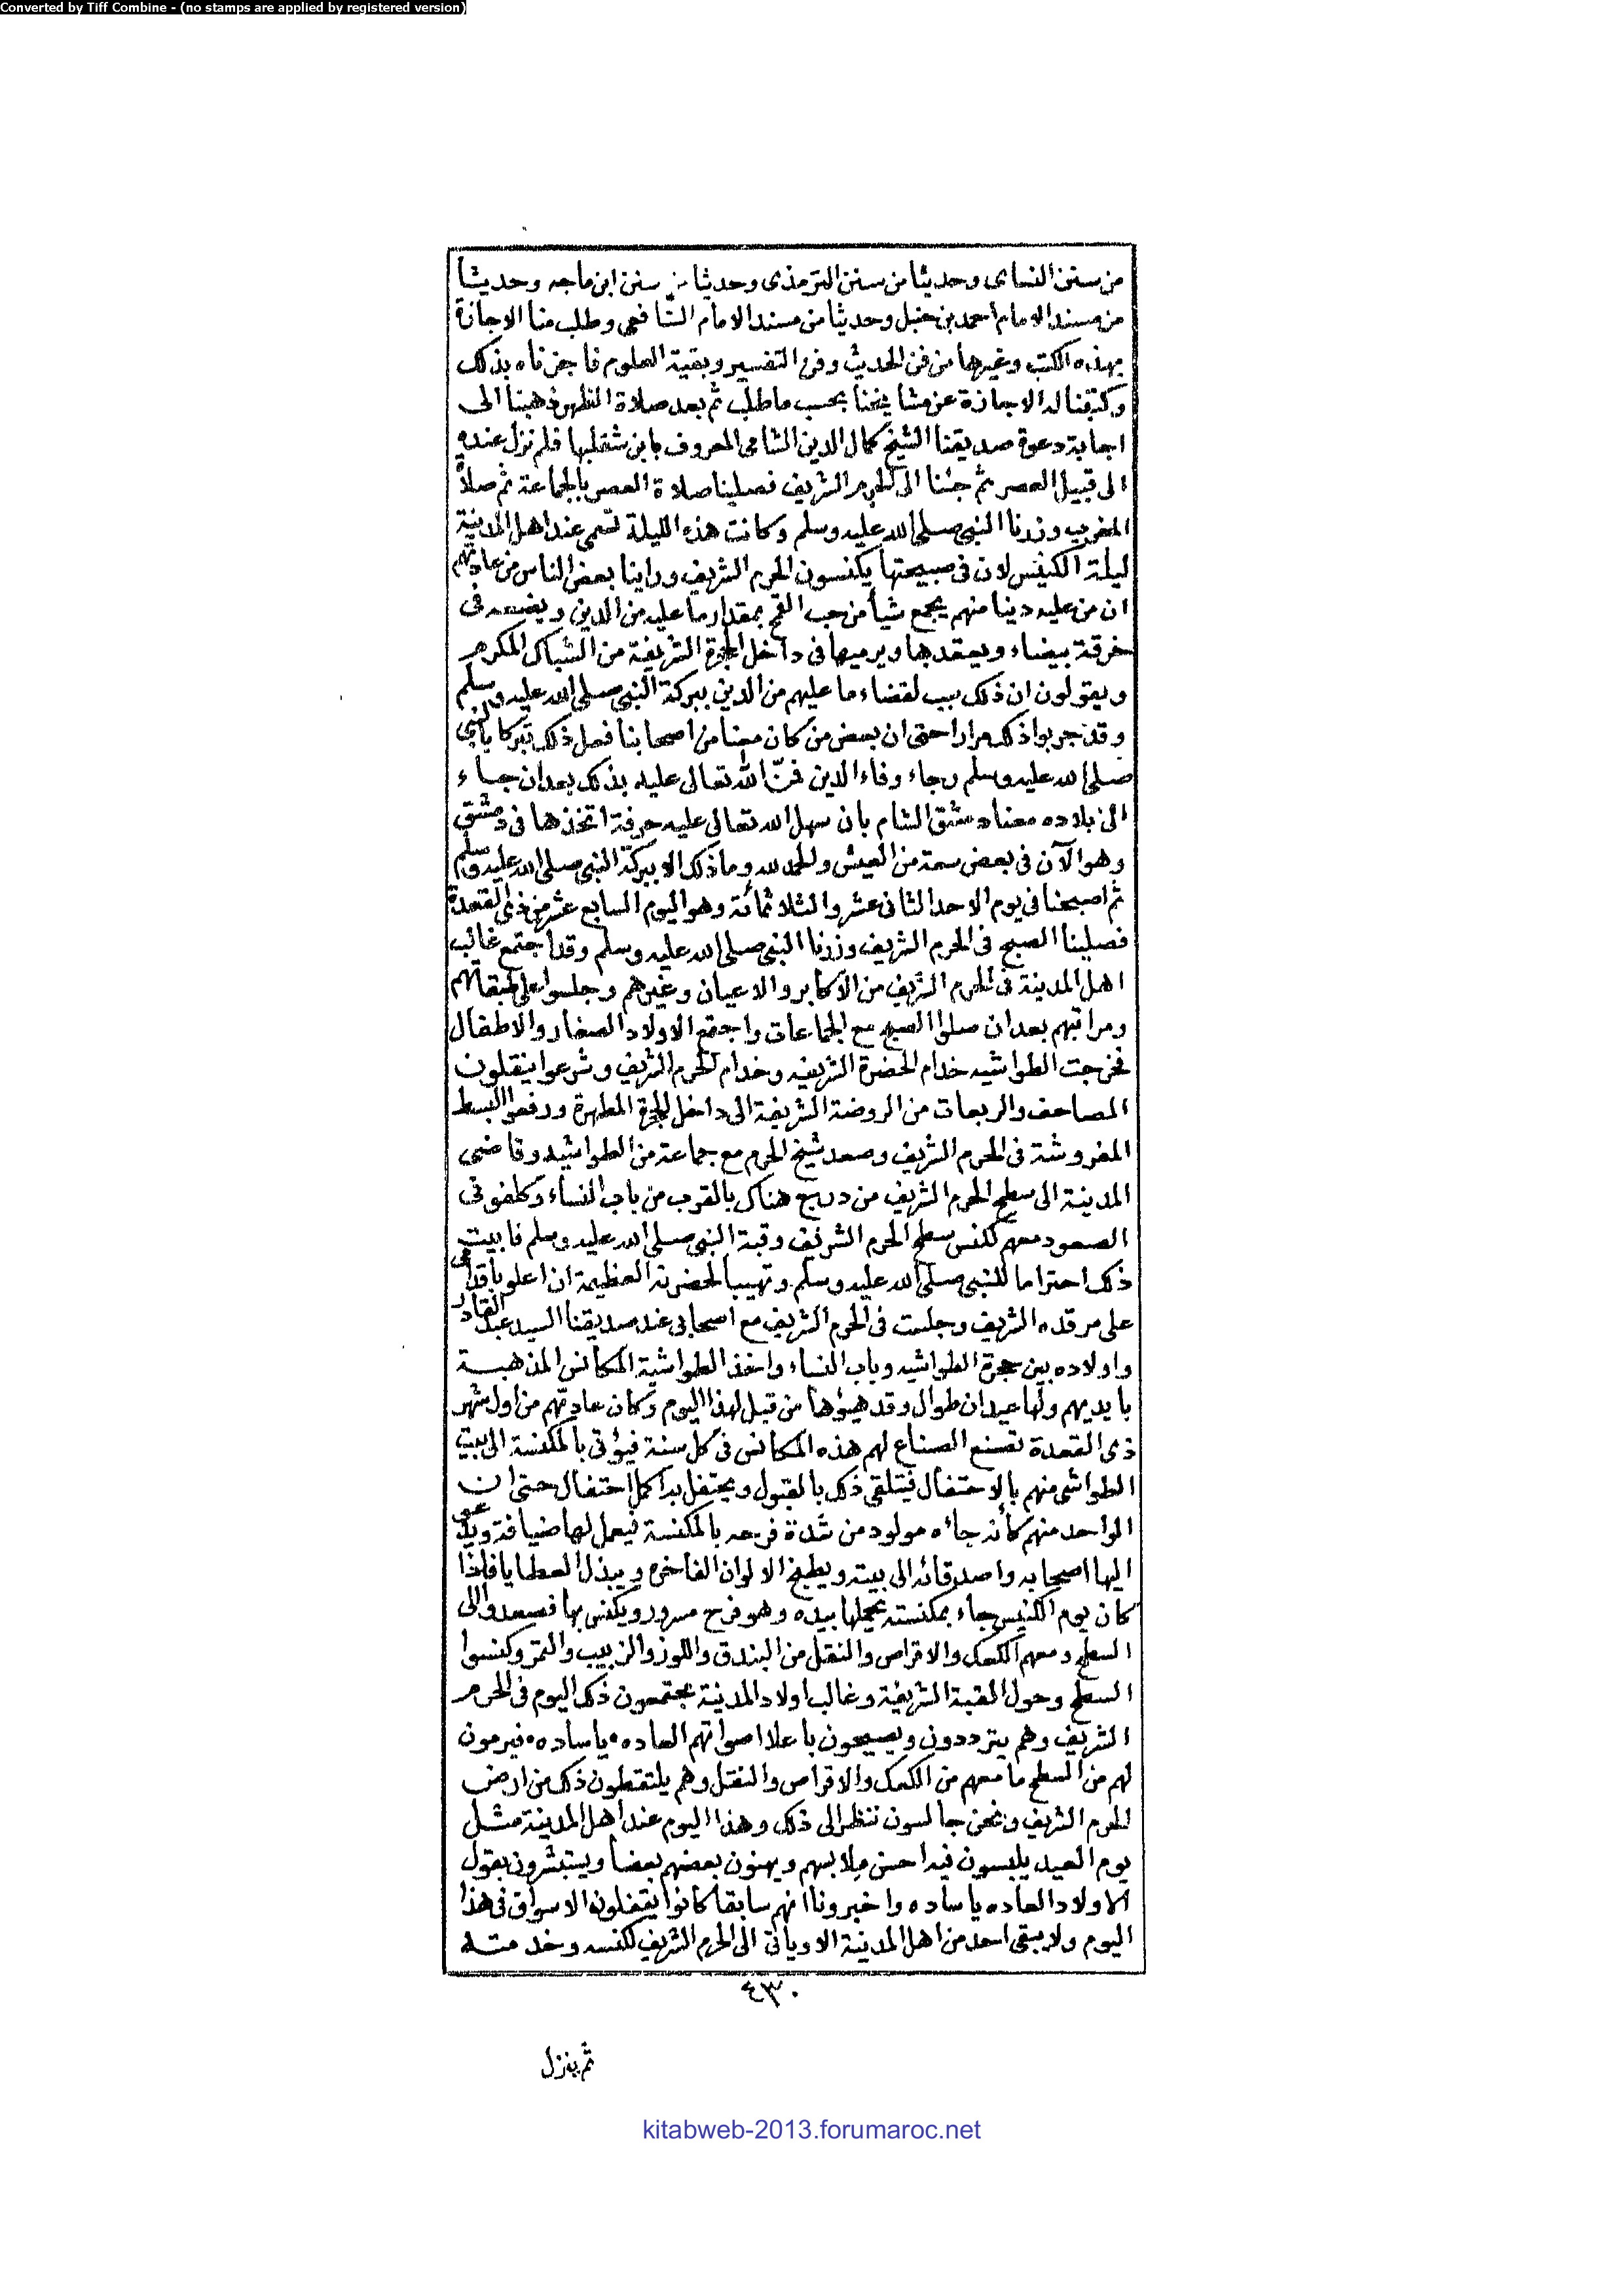 Converted by Tiff Combine - (no stamps are applied by registered version)
من سنن النساى وحديثا من سنن الترمذى وحديثا من سنن ابن ماجه وحديثا
من مسند الامام احمد بن حنبل وحديثا من مسند الامام الشافعى وطلب منا الاجازة
بهذه الكتب وغيرها من فن الحديث وفن التفسير وبقية العلوم فاجزناه بذلك
وكتبنا له الاجازة عن مشايخنا بحسب ما طلب ثم بعد صلاة الظهر ذهبنا الى
اجابة دعوة صديقنا الشيخ كمال الدين الشامى المعروف بابن فلم نزل عنده
الى قبيل العصر ثم جئنا الى الحرم الشريف فصلينا صلاة العصر بالجماعة ثم صلاة
المغرب وزرنا النبى صلى الله عليه وسلم وكانت هذه الليلة تسمى عند اهل المدينة
ليلة الكنيس لان فى صبيحتها يكنسون الحرم الشريف وراينا بعض الناس من عادتهم
ان من عليه دينا منهم يجمع شيأ من حب القمح بمقدار ما عليه من الدين ويضعه فى
خرقة بيضاء ويعقدها ويرميها فى داخل الحجرة الشريفة من الشباك المكرم
ويقولون ان ذلك سبب لقضاء ما عليهم من الدين ببركة النبى صلى الله عليه وسلم
وقد جربوا ذلك مرارا حتى ان بعض من كان معنا من اصحابنا فعل ذلك تبركا بالنبى
صلى الله عليه وسلم رجاء وفاء الدين فمنّ الله تعالى عليه بذلك بعد ان جاء
الى بلاده معنا دمشق الشام بان سهل الله تعالى عليه حرفة اتخذها فى دمشق
وهو الآن فى بعض سعة من العيش والحمد لله وما ذلك الا ببركة النبى صلى الله عليه وسلم
ثم اصبحنا فى يوم الاحد الثانى عشر والثلاثمائة وهو اليوم السابع عشر من ذى القعدة
فصلينا الصبح فى الحرم الشريف وزرنا النبى صلى الله عليه وسلم وقد اجتمع غالب
اهل المدينة فى الحرم الشريف من الاكابر والاعيان وغيرهم وجلسوا على طبقاتهم
ومراتبهم بعد ان صلوا الصبح مع الجماعات واجتمع الاولاد الصغار والاطفال
فخرجت الطواشيه خدام الحضرة الشريفه وخدام الحرم الشريف وشرعوا ينقلون
المصاحف والربعات من الروضة الشريفة الى داخل الحجرة المطهرة ورفعوا البسط
المفروشة فى الحرم الشريف وصعد شيخ الحرم مع جماعة من الطواشيه وقاضى
المدينة الى سطح الحرم الشريف من درج هناك بالقرب من باب النساء وكلفونى
الصعود معهم لكنس سطح الحرم الشريف وقبة النبى صلى الله عليه وسلم فابيت
ذلك احتراما للنبى صلى الله عليه وسلم وتهيبا لحضرته العظيمة ان اعلو باقدامى
على مرقده الشريف وجلست فى الحرم الشريف مع اصحابى عند صديقنا السيد عبد القادر
واولاده بين حجرة الطواشيه وباب النساء واخذ الطواشية المكانس المذهبة
بايديهم ولها عيدان طوال وقد هيؤها من قبل لهذا اليوم وكان عادتهم من اول شهر
ذى القعدة تصنع الصناع لهم هذه المكانس فى كل سنة فيؤتى بالمكنسة الى بيت
الطواشى منهم بالاحتفال فيتلقى ذلك بالقبول ويحتفل به اكمل احتفال حتى ان
الواحد منهم كأنه جاءه مولود من شدة فرحه بالمكنسة فيعمل لها ضيافة ويدعو
اليها اصحابه واصدقائه الى بيته ويطبخ الالوان الفاخره ويبذل العطايا فاذا
كان يوم الكنيس جاء بمكنسته يحملها بيده وهو فرح مسرور ويكنس بها فصعدوا الى
السطح ومعهم الكعك والاقراص والنقل من البندق واللوز والزبيب والتمر وكنسوا
السطح وحول القبة الشريفة وغالب اولاد المدينة يجتمعون ذلك اليوم فى الحرم
الشريف وهم يترددون ويصيحون باعلا اصواتهم العاده ياساده فيرمون
لهم من السطح ما معهم من الكعك والاقراص والنقل وهم يلتقطون ذلك من ارض
الحرم الشريف ونحن جالسون ننظر الى ذلك وهذا اليوم عند اهل المدينة مثل
يوم العيد يلبسون فيه احسن ملابسهم ويهنون بعضهم بعضا ويستبشرون بقول
الاولاد العاده ياساده واخبرونا انهم سابقا كانوا يقفلون الاسواق فى هذا
اليوم ولا يبقى احد من اهل المدينة الا وياتى الى الحرم الشريف لكنسه وخدمته
٤٣٠
ثم ينزل
kitabweb-2013.forumaroc.net